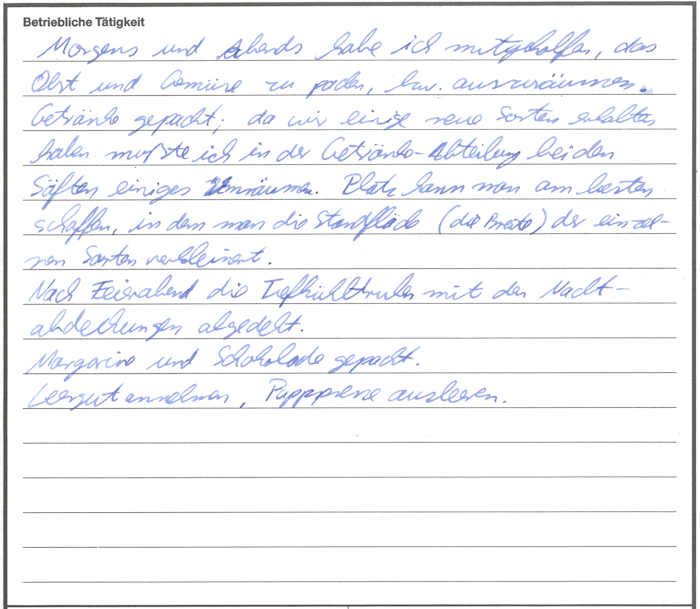 Betriebliche Tätigkeit
Morgens und Abends habe ich mitgeholfen, das
Obst und Gemüse zu packen, bzw. auszuräumen.
Getränke gepackt; da wir einige neue Sorten erhalten
haben mußte ich in der Getränke-Abteilung bei den
Säften einiges umräumen. Platz kann man am besten
schaffen, in dem man die Standfläche (die Breite) der einzel-
nen Sorten verkleinert.
Nach Feierabend die Tiefkühltruhen mit den Nacht-
abdeckungen abgedekt.
Margarine und Schokolade gepackt.
Leergut annehmen, Papppresse ausleeren.